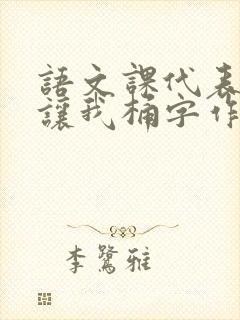 語文課代表
讓我桶字作
李鷺雅